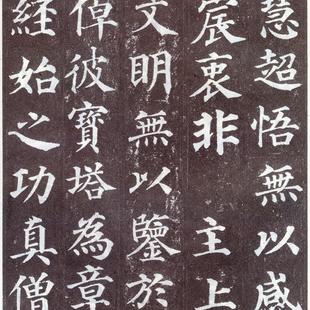 慧超悟無以感
宸衷非主上
文明無以鑒於
倬彼寶塔為章
經始之功真僧